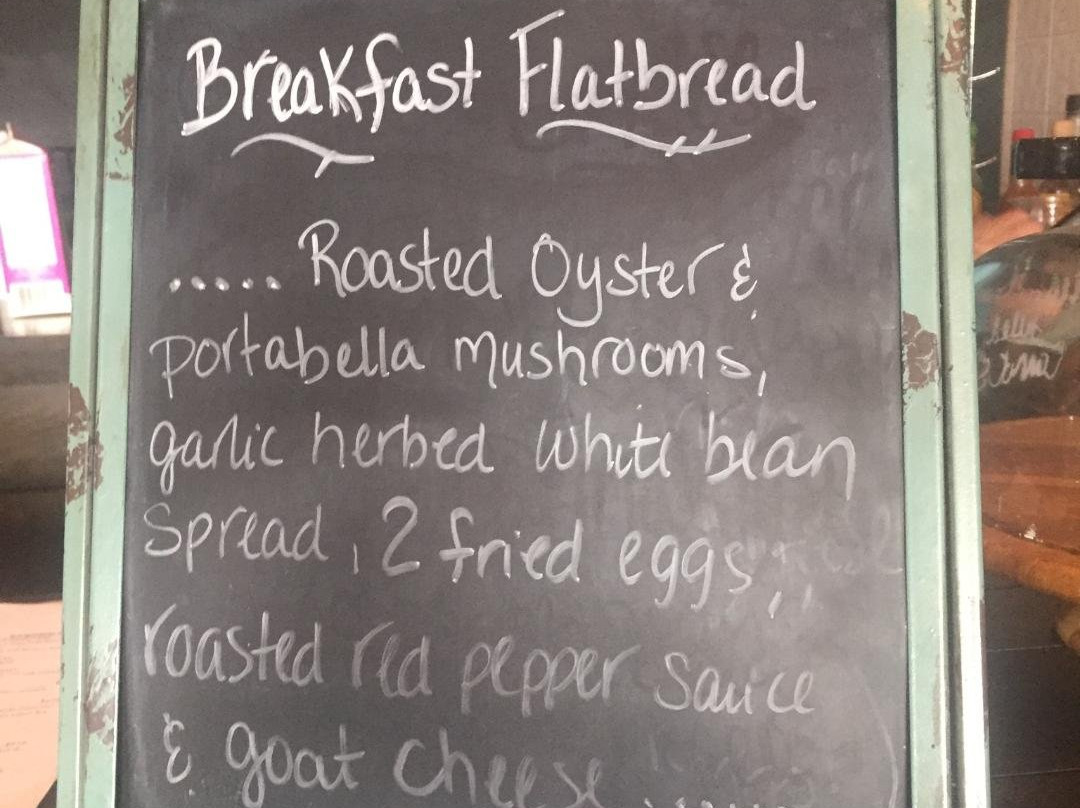 Breakfast Flatbread
..... Roasted Oyster &
portabella mushrooms,
garlic herbed white bean
Spread, 2 fried eggs,
roasted red pepper sauce
& goat cheese ......